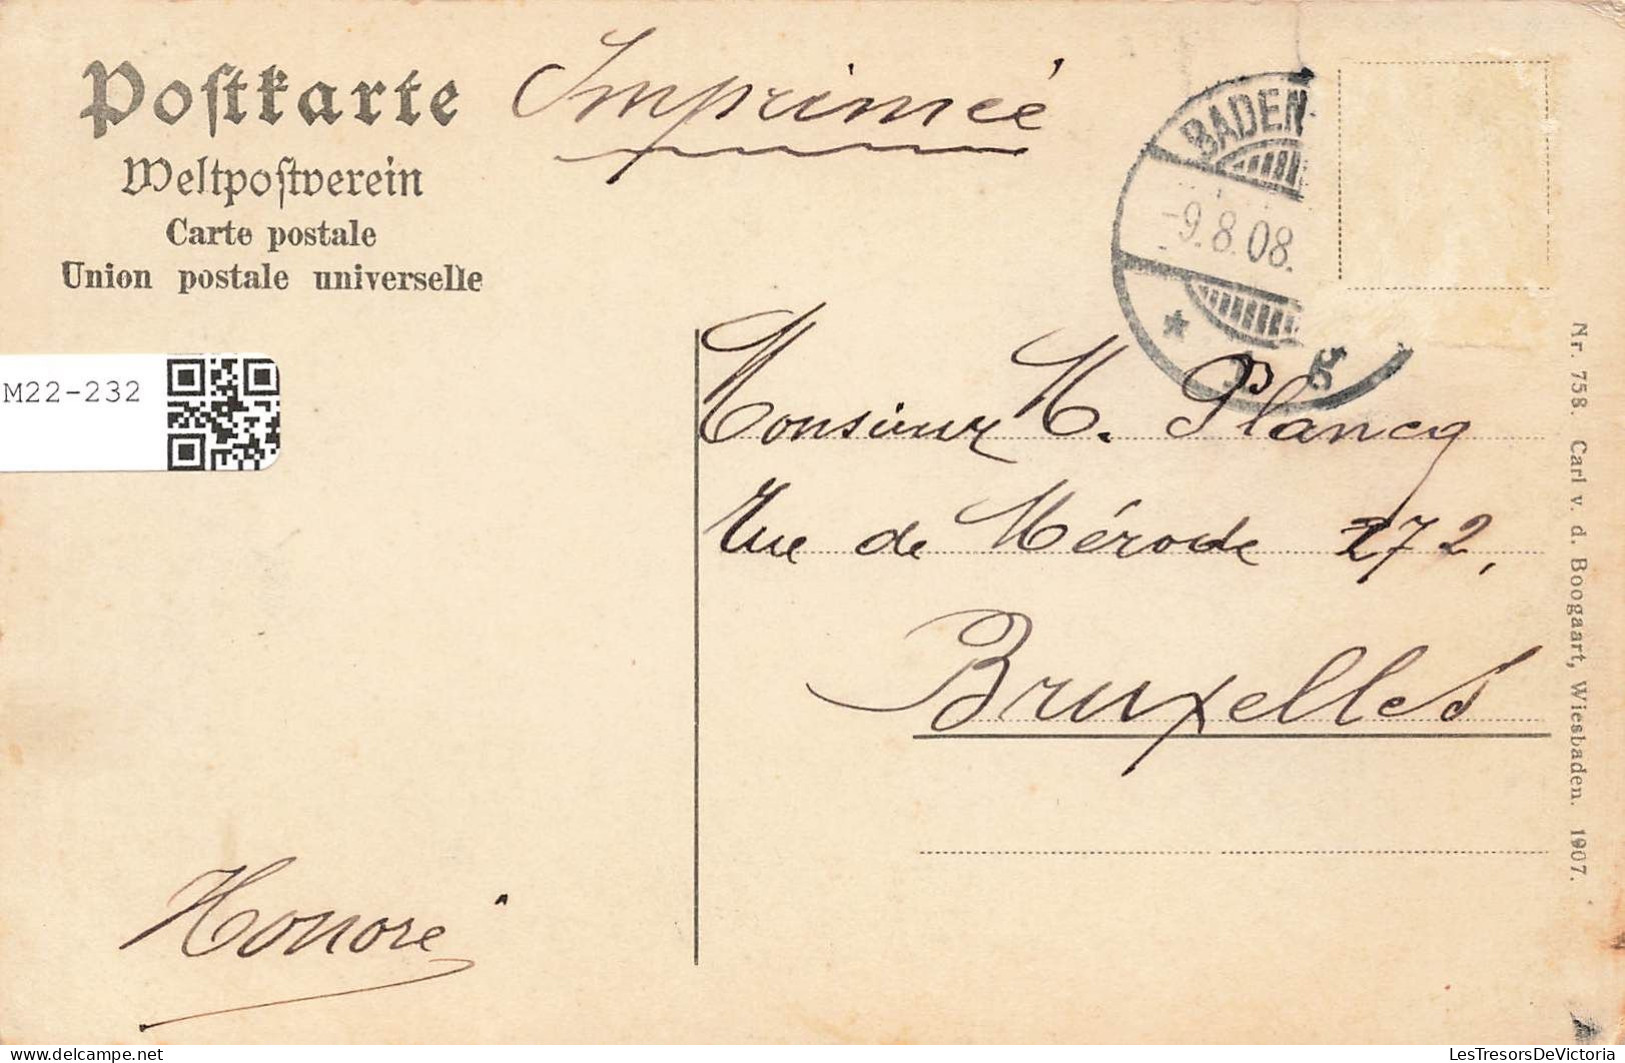 Postkarte
Weltpostverein
Carte postale
Union postale universelle
Impriméé
BADEN-
-9.8.08.
M22-232
Monsieur M. Plancq
Rue de Mérode 272,
Bruxelles
Honoré
Nr. 758. Carl v. d. Boogaart, Wiesbaden. 1907.
Delcampe.net
LesTresorsDeVictoria